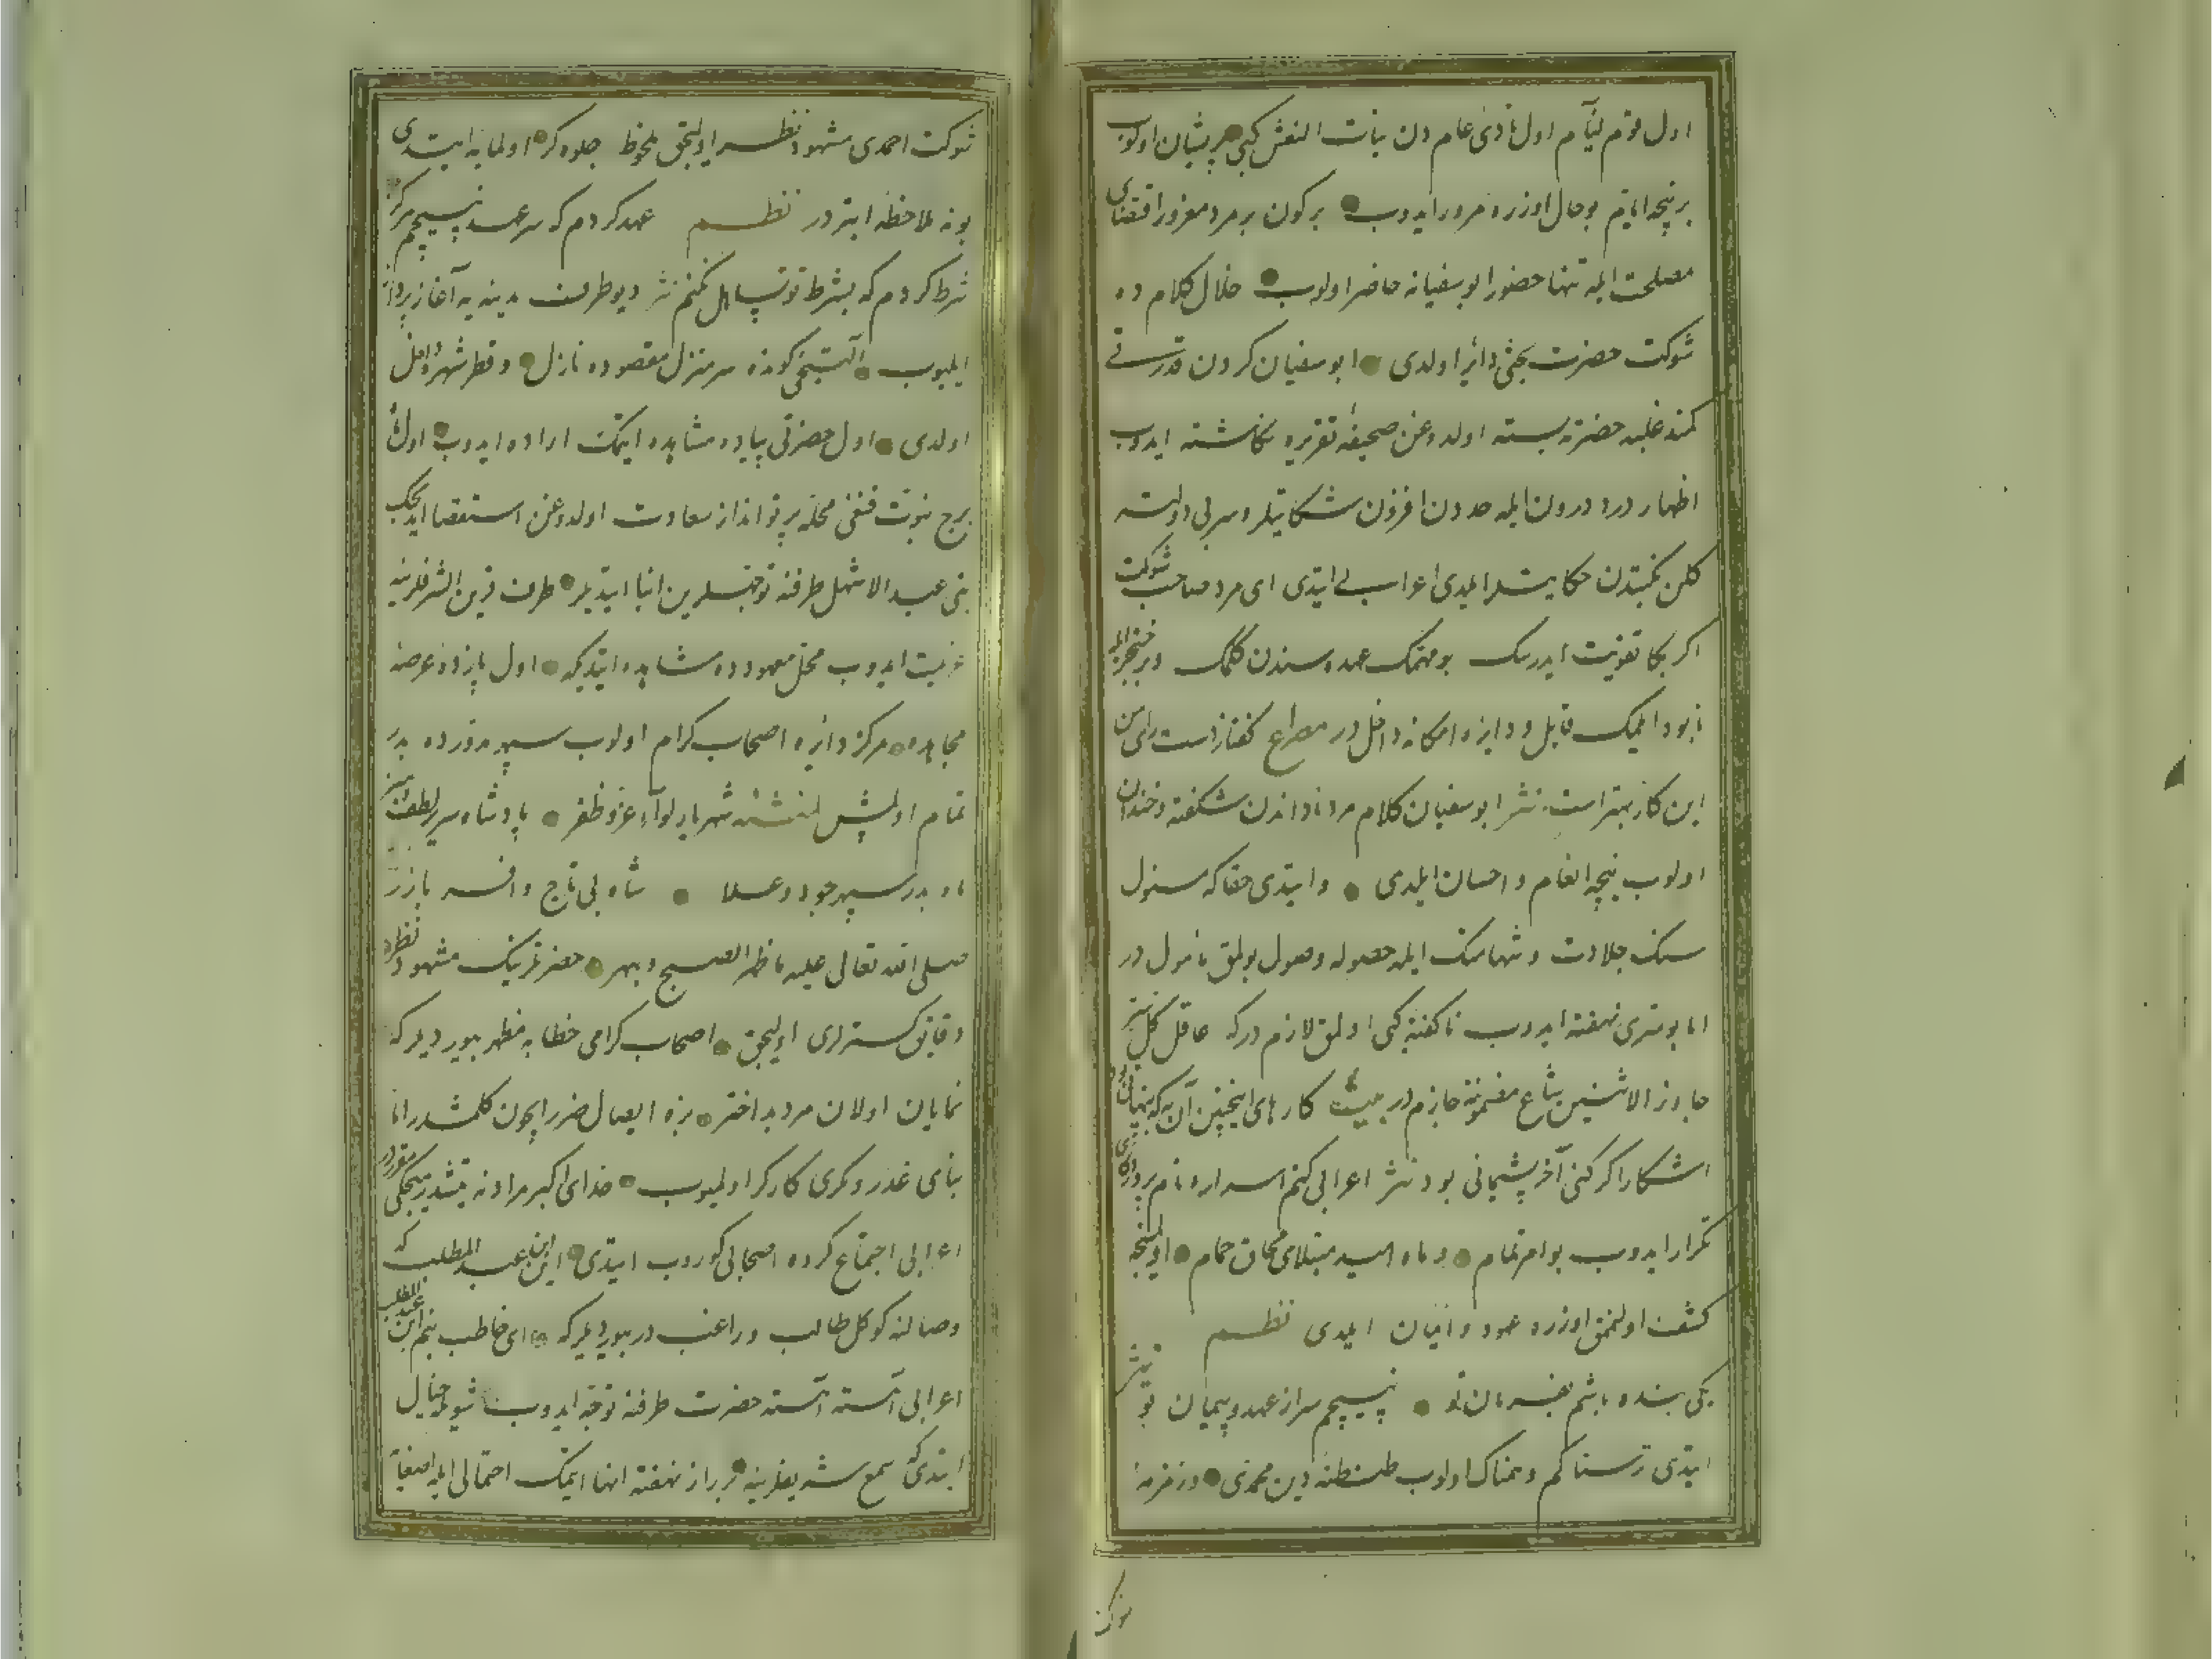 اول قوم لئام اول نادئ عام دن بنات النعش کبی پریشان اولوب
بر نیجه ایام بو حال اوزره مرور ایدوب بر کون بر مرد مغرور اقتضای
مصلحت ایله تنها حضور ابو سفیانه حاضر اولوب خلال کلام ده
شوکت حضرت بحثی دائر اولدی ابو سفیان کردون قدرتی
کمند غلبه حضرته بسته اولدوغن صحیفهٔ تقریره نکاشته ایدوب
اظهار درد درون ایله حددن افزون شکایتلر و سربی دولته
کلن نکبتدن حکایتلر ایلدی اعرابی ایتدی ای مرد صاحب شوکت
اکر بکا تقویت ایدرسک بو مهمک عهده سندن کلمک و بر خنجر ایله
نابود ایلمک قابل و دایره امکانه داخلدر مصراع کفتا راست رای من
این کار بهتر است نثر ابو سفیان کلام مرد نادانדن شکفته و خندان
اولوب نیجه انعام و احسان ایلدی و ایتدی حقا که مسئول
سنک جلادت و شهامتک ایله حصوله وصول بولمق مأمول در
اما بو سری نهفته ایدوب ناکفته کبی اولمق لازم در که عاقل کل سر
جاوز الاثنین شاع مضموننه جازم در بیت کارهای اینچنین آن به که پنهانی بود
اشکارا کر کنی آخر پشیمانی بود نثر اعرابی کتم اسراره نام پروردکاری
تکرار ایدوب بو امر تمام و ماه امید مبتلای محاق حمام اولمینجه
کشف اولنمق اوزره عهود و ایمان ایلدی نظم
یکی بنده باشم بفرمان تو نپیچم سر از عهد و پیمان تو نثر
ایتدی ترسناکم و همناک اولوب طنطنه دین محمدی و زمزمه
شوکت
شوکت احمدی مشهود نظر اولیجق ملحوظ جلوه کر اولمایه ایتدی
بونه ملاحظه ایتردر نظم عهد کردم که سر عهد نپیچم هرکز
شرط کردم که بشرط تو تساهل نکنم نثر دیو طرف مدینه یه آغاز پرواز
ایلیوب التنجی کونده سر منزل مقصوده نازل و قطر شهره داخل
اولدی اول حضرتی پیاده مشاهده ایتمک اراده ایدوب اول
برج نبوت قنغی محله پرتو انداز سعادت اولدوغن استقصا ایدیجک
بنی عبد الاشهل طرفنه توجهلرین انبا ایتدیلر طرف قرین الشرفلرینه
عزیمت ایدوب محل معهودده مشاهده ایتدیکه اول یازده عرصه
مجاهده مرکز دایره اصحاب کرام اولوب سپهرده بدر
تمام اولمش شهریار لوآء عز و ظفر پادشاه سریر لطف
ماه بدر سپهر جود و علا شاه بی تاج و افسر
صلی الله تعالی علیه ما ظهر الصبح و بهر حضرتک مشهود نظر
دقایق کسترلری اولیجق اصحاب کرامی خطابه مظهر بیوردیلر که
نمایان اولان مرد بد اختر بزه ایصال ضرر ایچون کلمشدر اما
بنای غدر و مکری کارکر اولمیوب خدای اکبر مرادنه یتشدرمیجکی مقرردر
اعرابی اجتماع کرده اصحابی کوروب ایتدی این ابن عبد المطلب که
وصالنه کوکل طالب و راغب در بیوردیلر که ای مخاطب بنم ابن عبد المطلب
اعرابی آهسته آهسته حضرت طرفنه توجه ایدوب شویله خیال
ایتدی که سمع شریفلرینه بر راز نهفته انها ایتمک احتمالی ایله اصغا